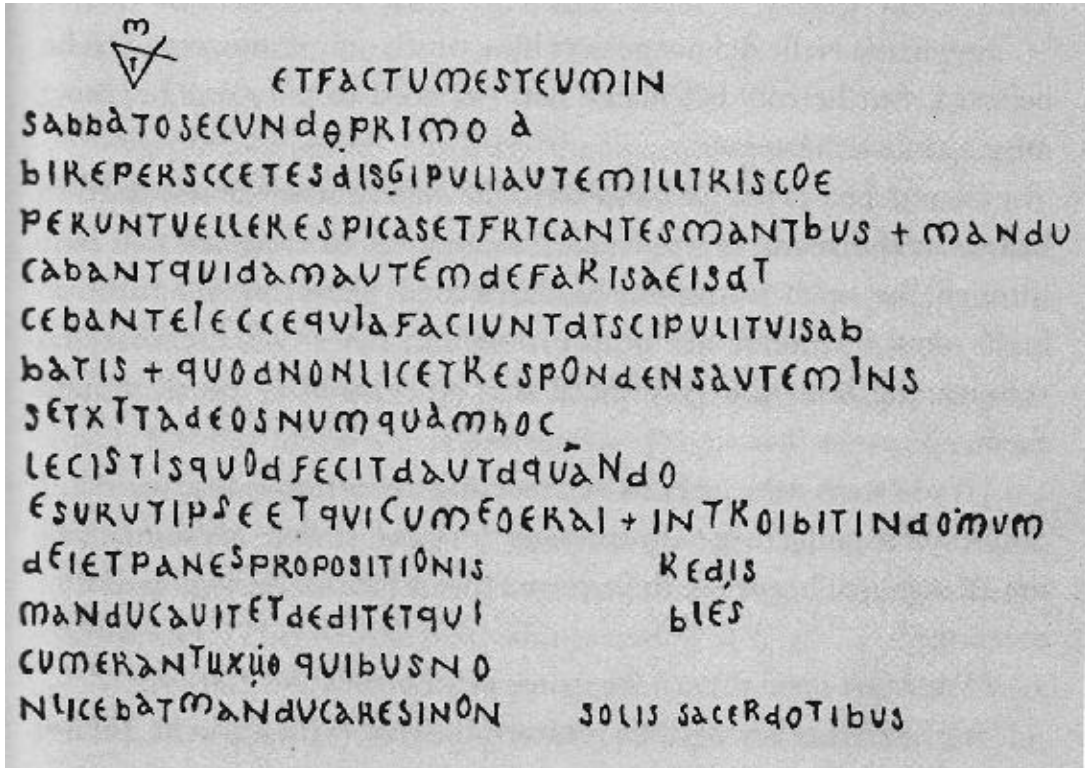 M
T
ETFACTUMESTEUMIN
SABBATOSECUNDOPRIMO A
BIREPERSCCETESDISGIPULIAUTEMILLTRISCOE
PERUNTUELLERESPICASETFRTCANTESMANTBUS + MANDU
CABANTQUIDAMAUTEMDEFARISAEISDT
CEBANTEIECCEQUIAFACIUNTDTSCIPULITUISAB
BATIS + QUODNONLICETRESPONDENSAUTEMINS
SETXTTADEOSNUMQUAMHOC
LECISTISQUODFECITDAUTDQUANDO
ESURUTIPSEETQUICUMEOERAI + INTROIBITINDOMUM
DEIETPANESPROPOSITIONIS REDIS
MANDUCAUITETDEDITETQUI BLES
CUMERANTUXUO QUIBUSNO
NLICEBATMANDUCARESINON SOLIS SACERDOTIBUS